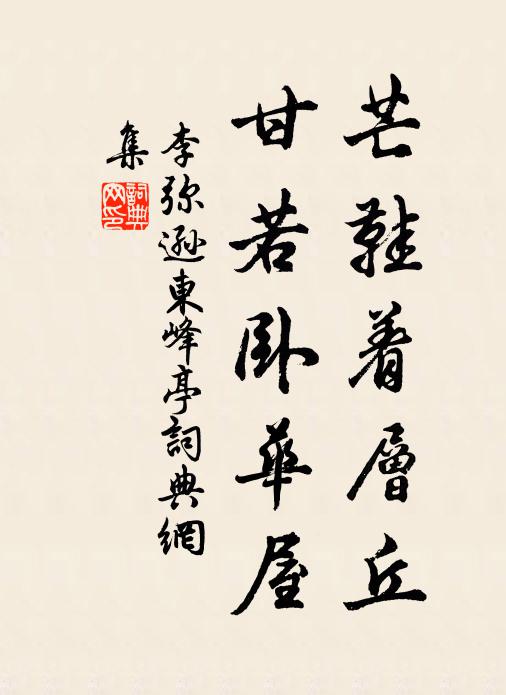 芒鞋着層丘
甘若卧華屋
李弥遜東峰亭詞典網
集
詞典网印